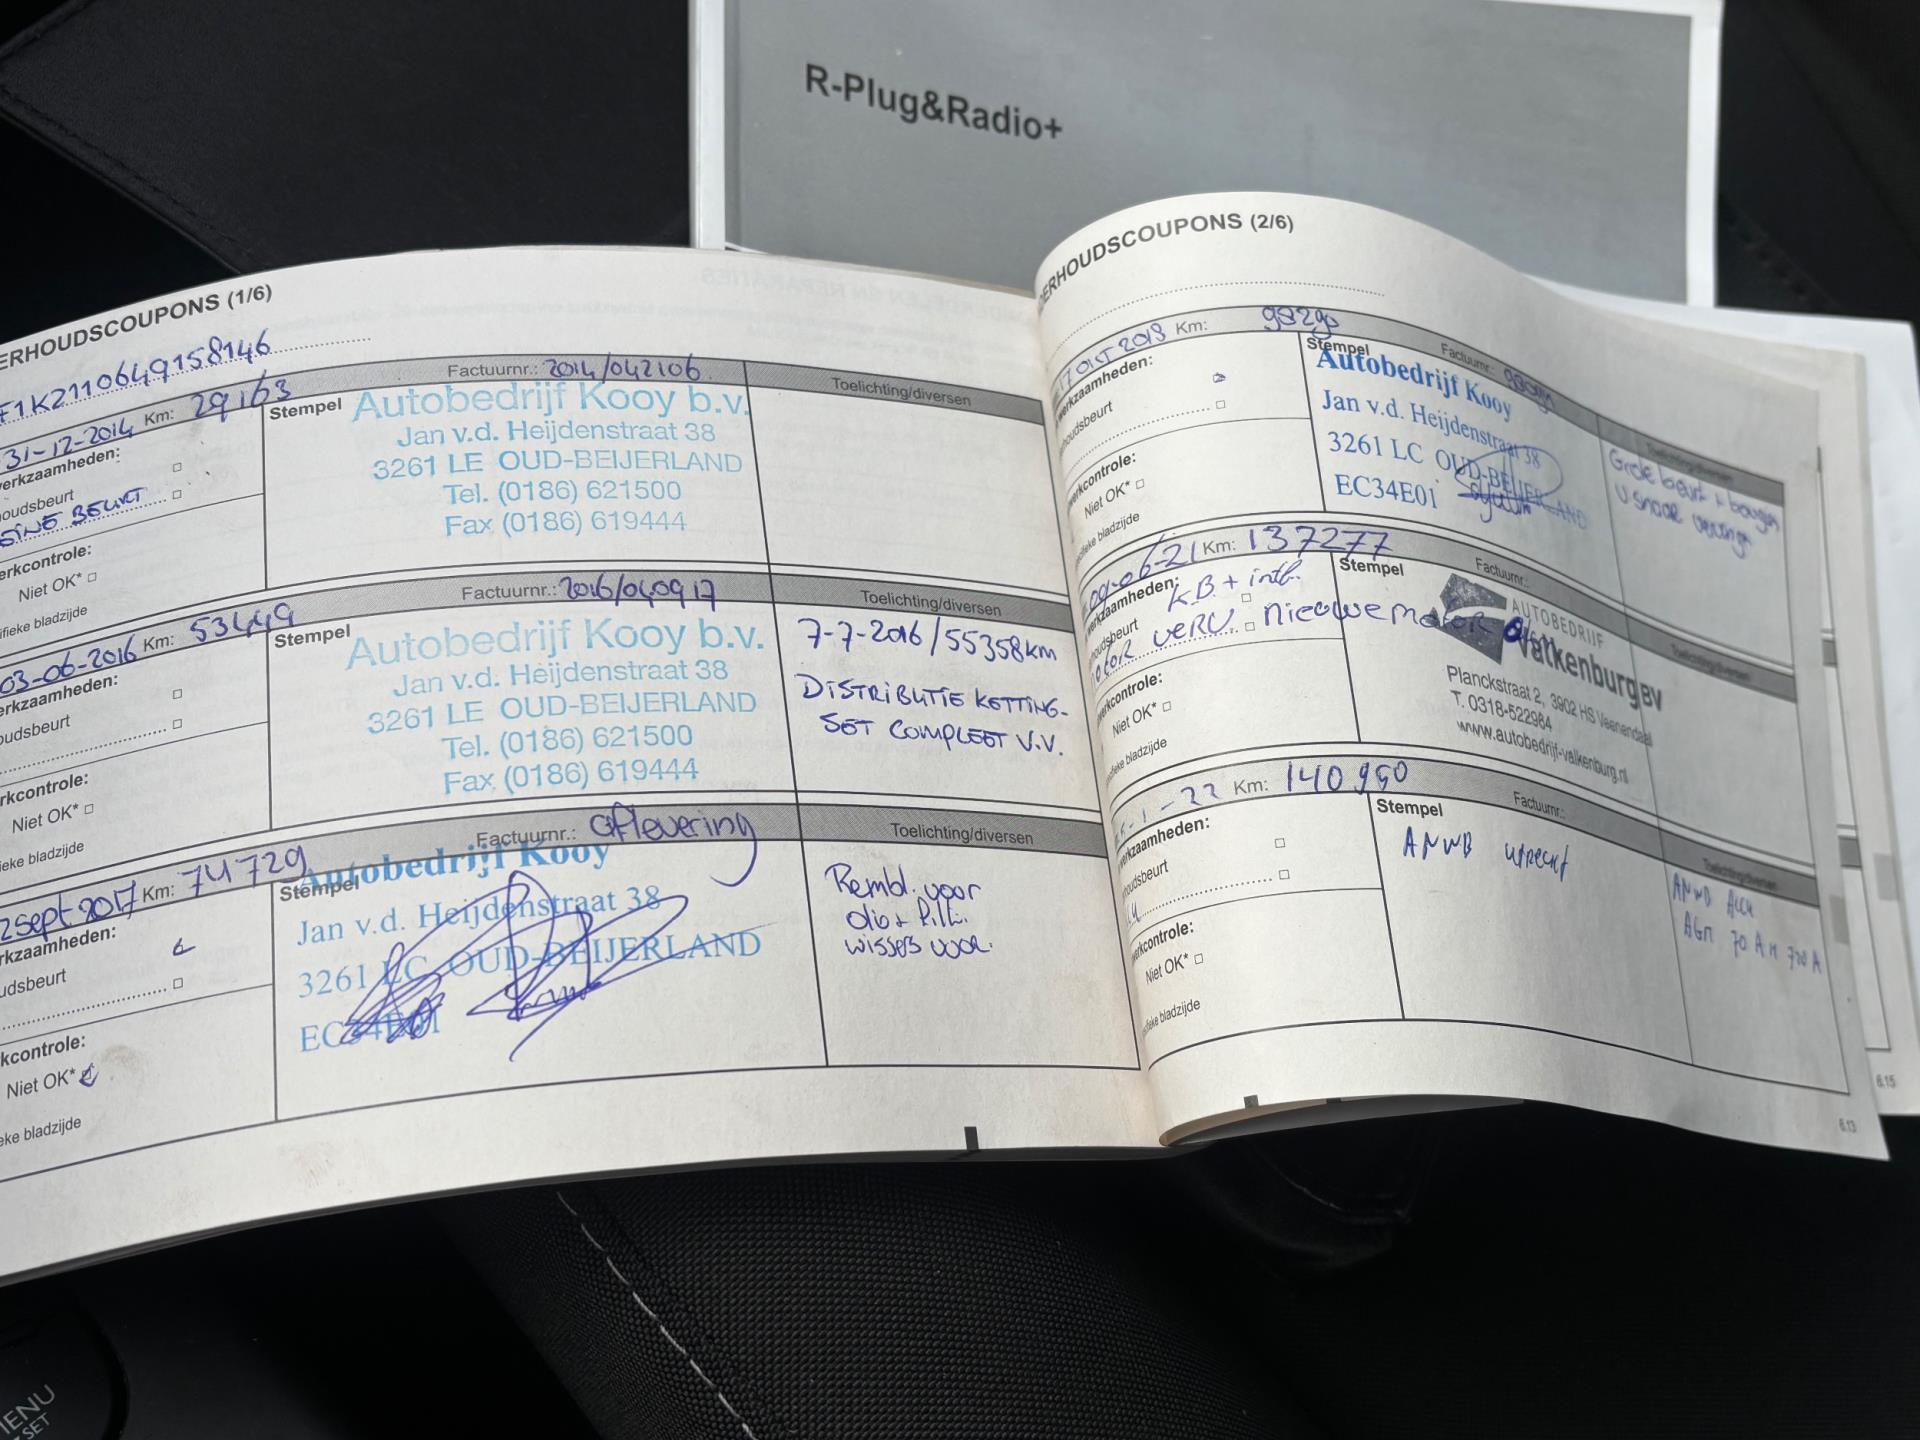 R-Plug&Radio+
ERHOUDSCOUPONS (1/6)
F1K2110649158146
31-12-2014 Km: 29163
Factuurnr.: 2014/042106
Toelichting/diversen
erkzaamheden:
houdsbeurt
BEURT
erkcontrole:
Niet OK* □
ifieke bladzijde
Stempel
Autobedrijf Kooy b.v.
Jan v.d. Heijdenstraat 38
3261 LE OUD-BEIJERLAND
Tel. (0186) 621500
Fax (0186) 619444
03-06-2016 Km: 53449
Factuurnr.: 2016/040917
Toelichting/diversen
erkzaamheden:
oudsbeurt
rkcontrole:
Niet OK* □
ieke bladzijde
Stempel
Autobedrijf Kooy b.v.
Jan v.d. Heijdenstraat 38
3261 LE OUD-BEIJERLAND
Tel. (0186) 621500
Fax (0186) 619444
7-7-2016/55358km
DISTRIBUTIE KETTING-
SET COMPLEET V.V.
2 sept 2017 Km: 74729
Factuurnr.: aflevering
Toelichting/diversen
rkzaamheden:
udsbeurt
kcontrole:
Niet OK*
eke bladzijde
Stempel
Autobedrijf Kooy
Jan v.d. Heijdenstraat 38
3261 LC OUD-BEIJERLAND
EC34E01
Rembl. voor
wissers voor.
DERHOUDSCOUPONS (2/6)
17 okt 2018 Km: 98290
Factuurnr.:
Toelichting/diversen
erkzaamheden:
houdsbeurt
erkcontrole:
Niet OK* □
ifieke bladzijde
Stempel
Autobedrijf Kooy
Jan v.d. Heijdenstraat 38
3261 LC OUD-BEIJERLAND
EC34E01
Grote beurt + bougies
09-06-21 Km: 137277
Factuurnr.:
Toelichting/diversen
erkzaamheden:
KB +
houdsbeurt
motor VERV. nieuwe motor
werkcontrole:
Niet OK* □
ifieke bladzijde
Stempel
AUTOBEDRIJF
Valkenburg BV
Planckstraat 2, 3902 HS Veenendaal
T. 0318-522984
www.autobedrijf-valkenburg.nl
-1-22 Km: 140950
Factuurnr.:
Toelichting/diversen
erkzaamheden:
houdsbeurt
erkcontrole:
Niet OK* □
ifieke bladzijde
Stempel
ANWB utrecht
ANWB Accu
AGM 70 AH 720 A
6.13
6.15
MENU
SET